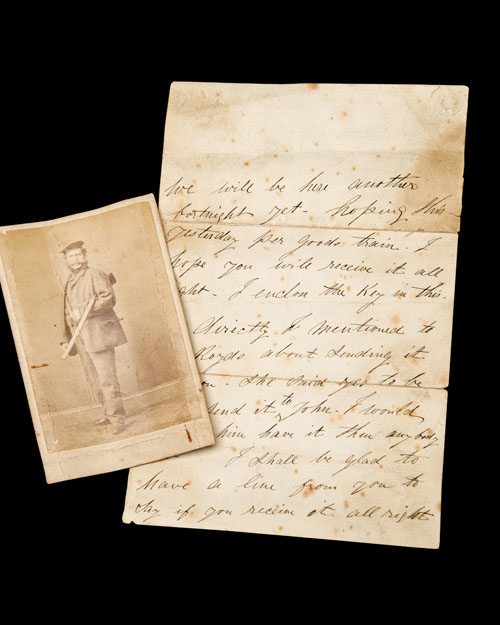 we will be here another
fortnight yet - hoping this -
yesterday per goods train. I
hope you will receive it all
ght - I enclose the Key in this -
directly I mentioned to
Royds about sending it
on. She said yes to be
send it to John. I would
him have it then any body
I shall be glad to
have a line from you to
say if you receive it all right